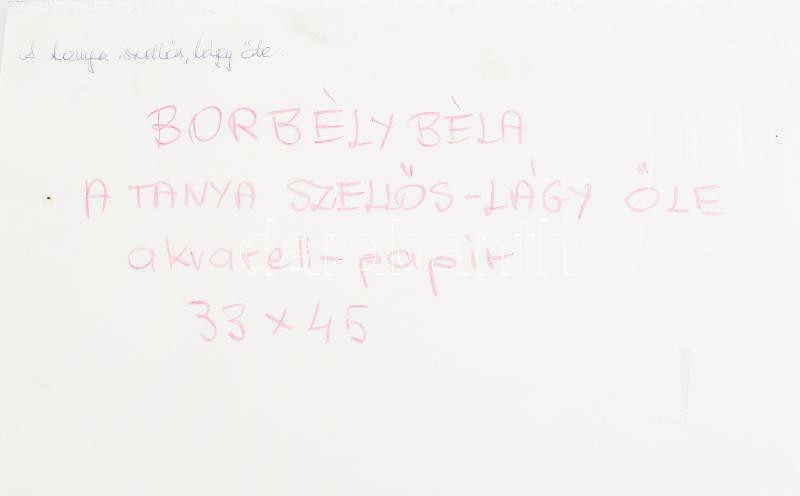 A tanya szellős, lágy öle.
BORBÈLY BÈLA
A TANYA SZELLŐS-LÁGY ÖLE
akvarell-papír
darabanth
33 x 45